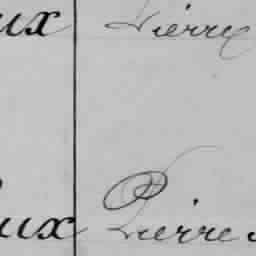 ux Pierre
ux Pierre